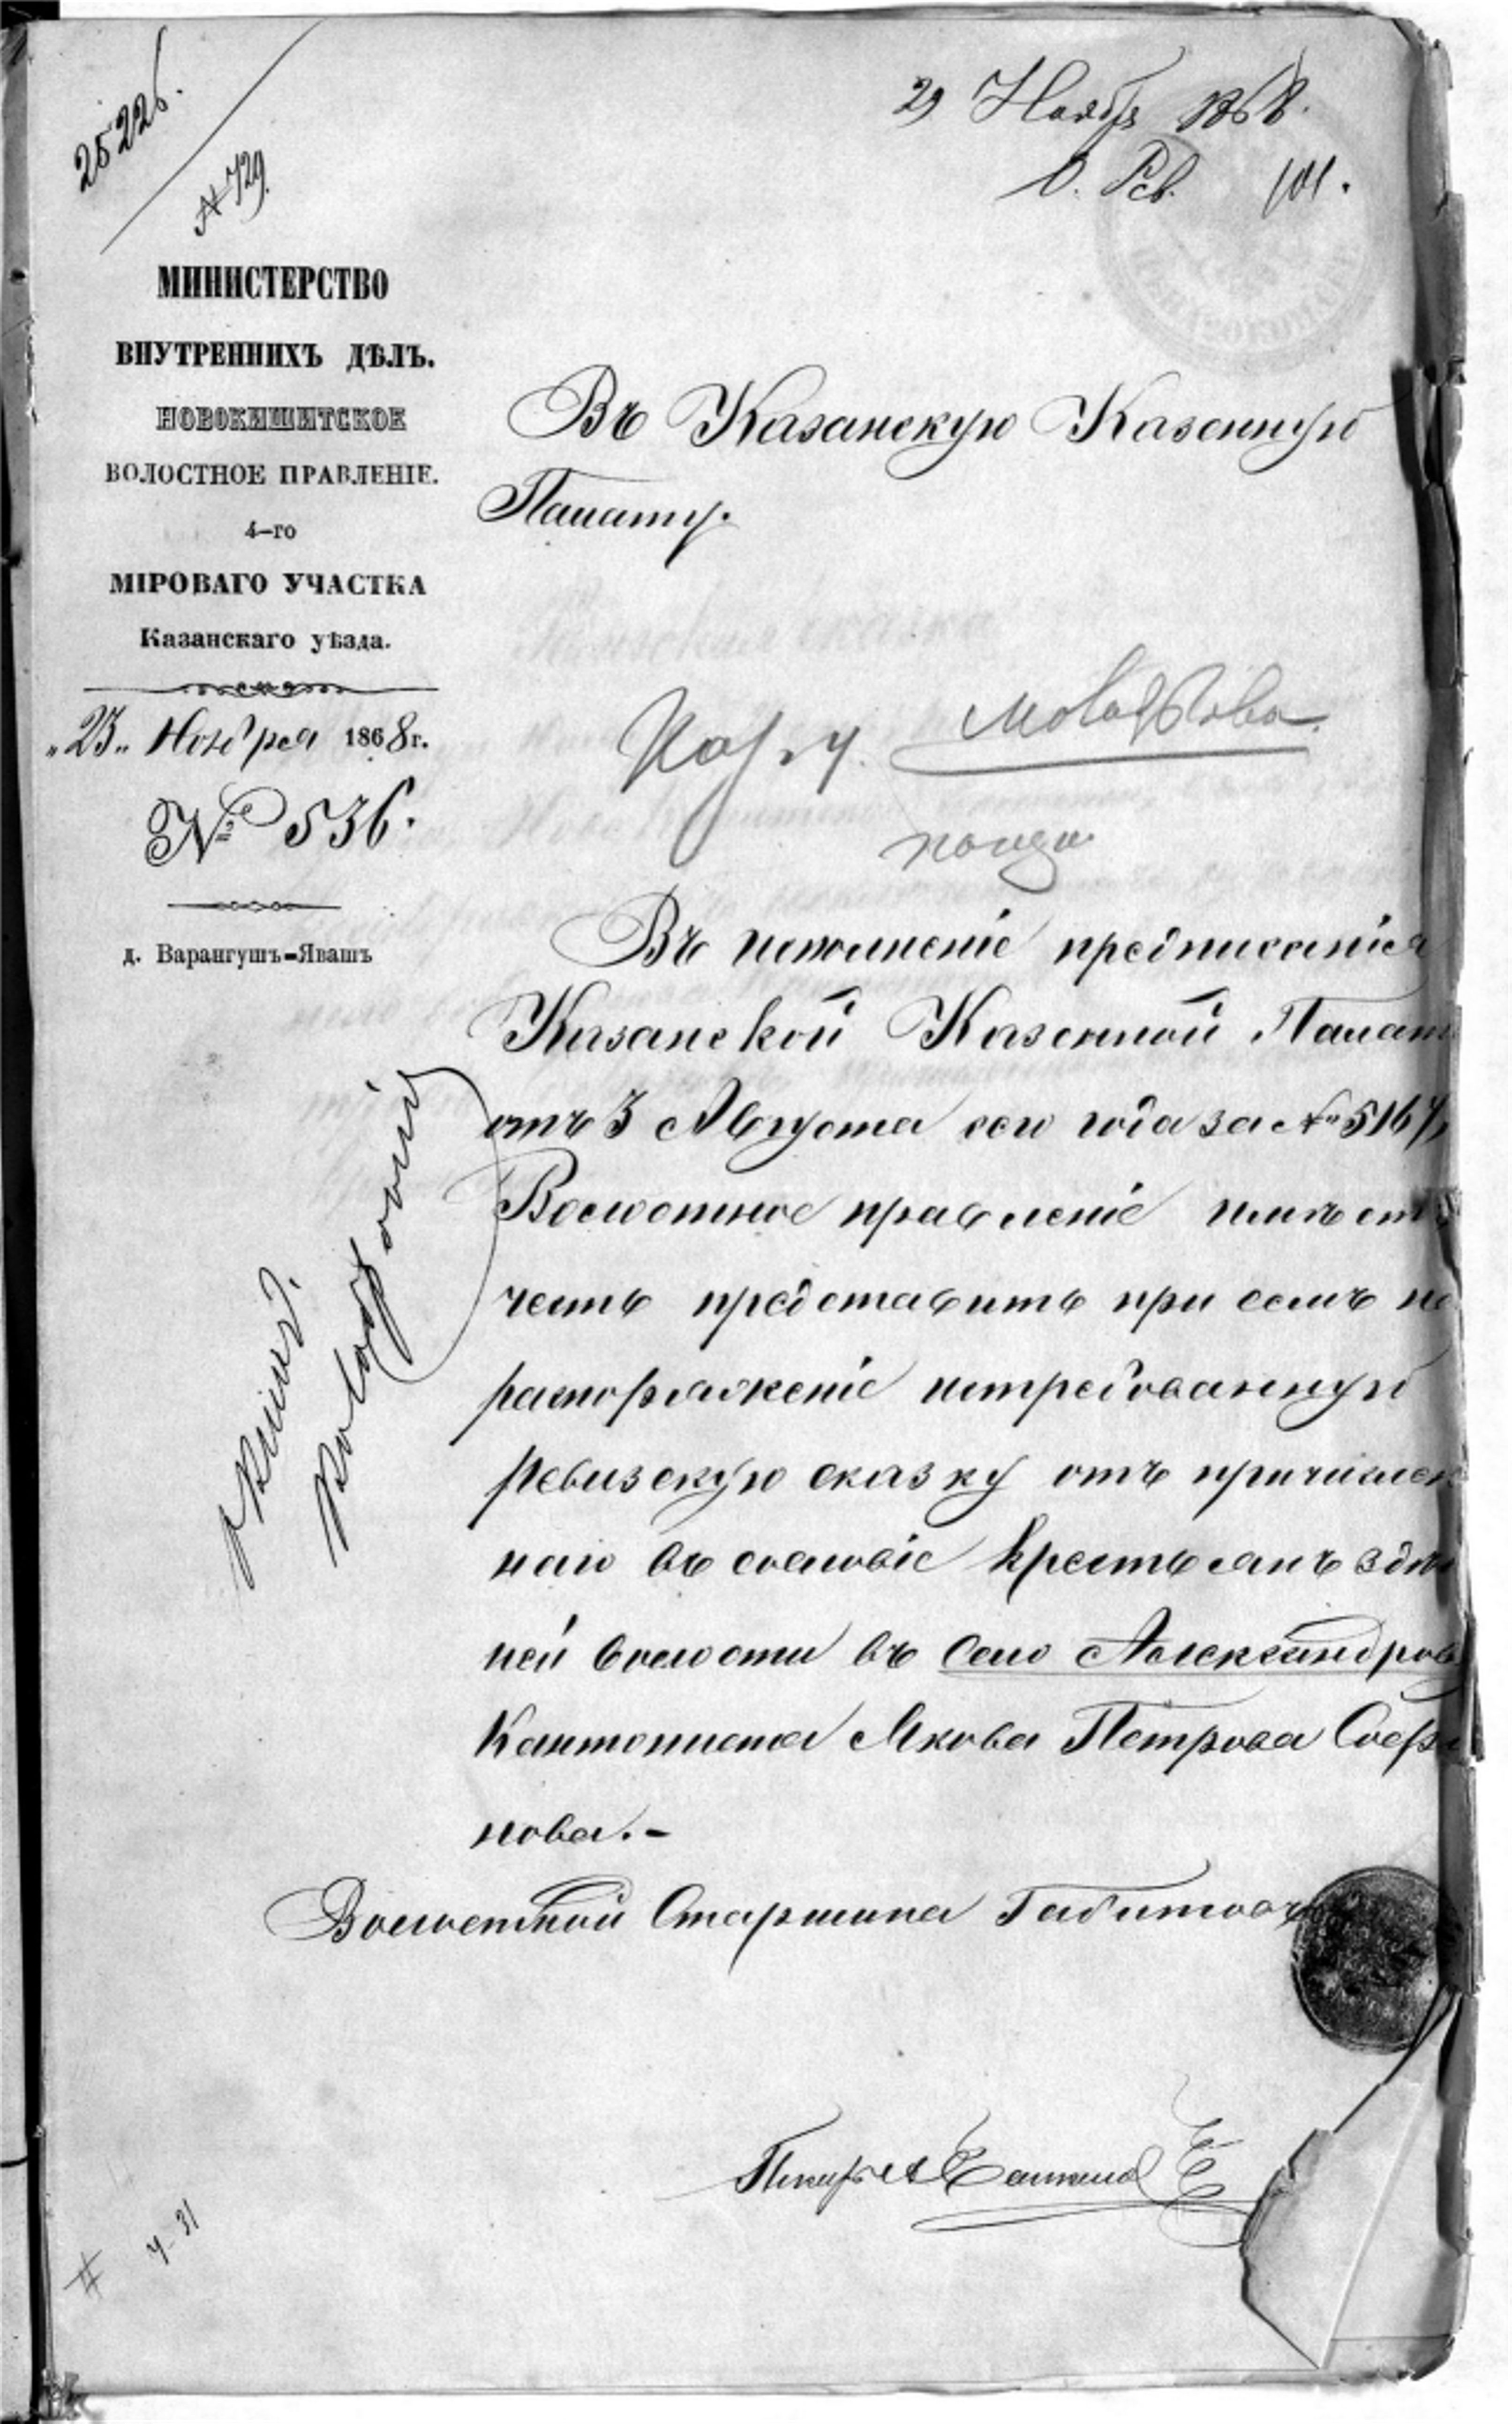 25226.
№ 729
29 Ноябр 1868.
О. Рев. 101.
МИНИСТЕРСТВО
ВНУТРЕННИХЪ ДѢЛЪ.
НОВОКИШИТСКОЕ
ВОЛОСТНОЕ ПРАВЛЕНІЕ.
4-го
МІРОВАГО УЧАСТКА
Казанскаго уѣзда.
„23„ Ноября 1868 г.
№ 536.
д. Варангушъ-Явашъ
Въ Казанскую Казенную
Палату.
Въ исполненіе предписанія
Казанской Казенной Палат
отъ 3 Августа сего года за № 5167,
Волостное правленіе имѣетъ
честь представить при семъ
распоряженіе истребованную
ревизскую сказку отъ причислен
наго въ сословіе крестьянъ здѣ
ней волости въ село Александров
Кантониста Якова Петрова Софро
нова.-
Волостной Старшина Габитовъ
Писарь
4-31